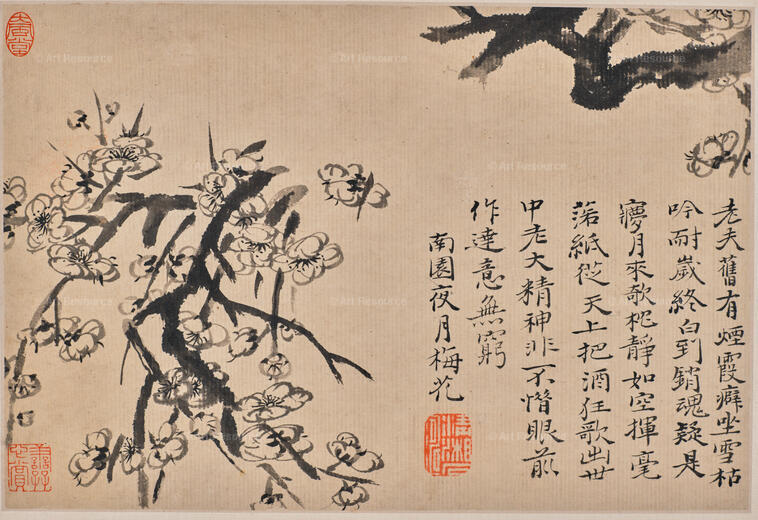 老夫舊有煙霞癖坐雪枯
吟耐歲終白到銷魂疑是
夢月來欹枕靜如空揮毫
落紙從天上把酒狂歌出世
中老大精神非不惜眼前
作達意無窮
南園夜月梅花
© Art Resource